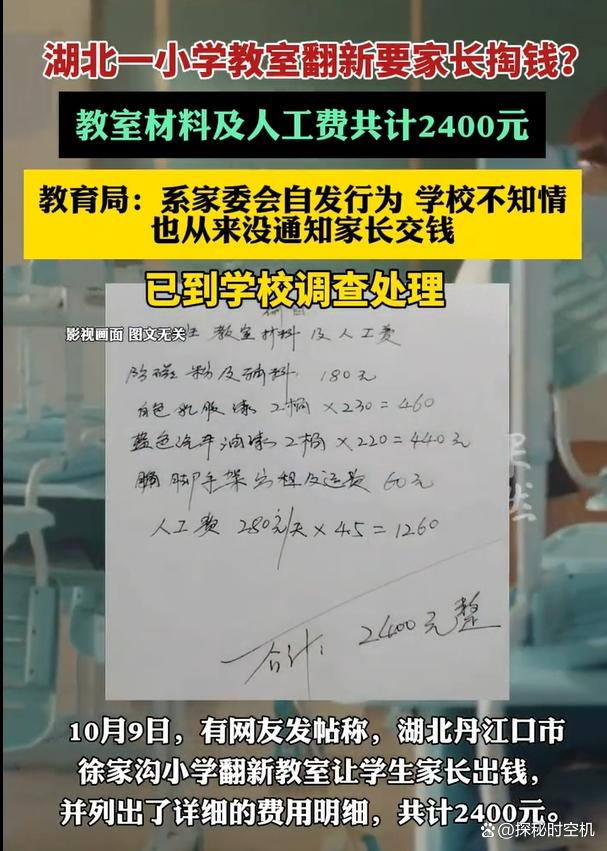 湖北一小学教室翻新要家长掏钱？
教室材料及人工费共计2400元
教育局：系家委会自发行为 学校不知情
也从来没通知家长交钱
已到学校调查处理
影视画面 图文无关
班 教室材料及人工费
粉及辅料: 180元
色乳胶漆 2桶 × 230 = 460
蓝色汽车油漆 2桶 × 220 = 440元
脚手架出租及运费 60元
人工费 280元/天 × 4.5 = 1260
合计: 2400元整
10月9日，有网友发帖称，湖北丹江口市
徐家沟小学翻新教室让学生家长出钱，
并列出了详细的费用明细，共计2400元。
@探秘时空机